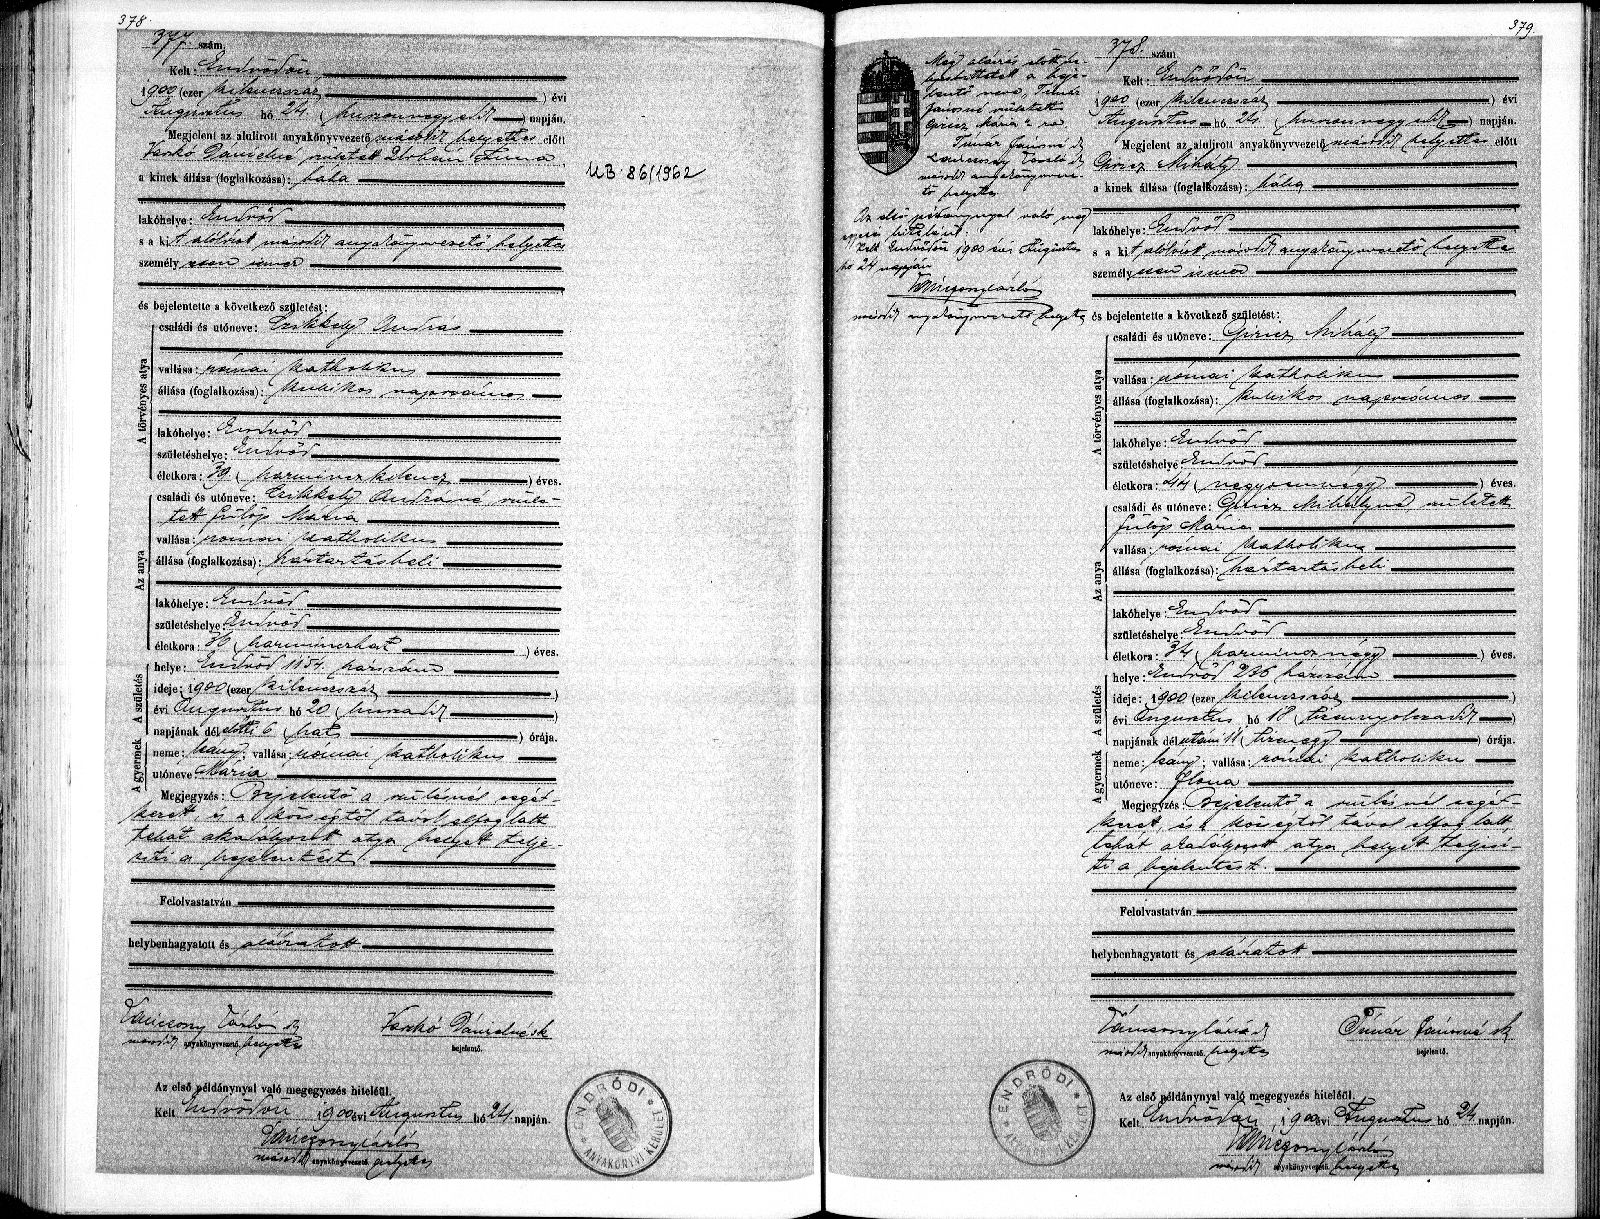 378.
377. szám.
Kelt: Endrődön
1900 (ezer kilenczszáz ) évi
Augusztus hó 24. (huszonnegyedik) napján.
Megjelent az alulirott anyakönyvezető második helyettes előtt
Varkó Dánielné született Anna,
a kinek állása (foglalkozása): bába
lakóhelye: Endrőd
s a kit alólirt második anyakönyvvezető helyettes
személy ismer
és bejelentette a következő születést:
A törvényes atya
családi és utóneve: András
vallása: római katholikus
állása (foglalkozása): kubikos napszámos
lakóhelye: Endrőd
születéshelye: Endrőd
életkora: 39 (harminczkilencz) éves.
Az anya
családi és utóneve: Andrásné szüle-
tett Fülöp Mária
vallása: római katholikus
állása (foglalkozása): háztartásbeli
lakóhelye: Endrőd
születéshelye: Endrőd
életkora: 36 (harminczhat) éves.
A születés
helye: Endrőd 1154. házszám
ideje: 1900 (ezer kilenczszáz )
évi Augusztus hó 20 (huszadik )
napjának délelőtti 6 (hat ) órája.
A gyermek
neme: leány; vallása: római katholikus;
utóneve Mária
Megjegyzés: Bejelentő a szülésnél segéd-
kezett, és a községtől távol elfoglalt
tehát akadályozott atya helyett telje-
síti a bejelentést.
Felolvastatván
helybenhagyatott és aláíratott
Vánczony László sk
második anyakönyvvezető. helyettes
Varkó Dánielné sk
bejelentő.
Az első példánynyal való megegyezés hiteléül.
Kelt Endrődön 1900 évi Augusztus hó 24 napján.
Vánczony László
második anyakönyvvezető. helyettes
ENDRŐDI ANYAKÖNYVI KERÜLET
UB. 86/1962
379.
Még aláírás előtt
a beje-
lentő neve, Timár
Jánosné született
Giricz Mária
Timár Jánosné sk
Vánczony László sk
második anyakönyvveze-
tő helyettes
Az első példánynyal való meg
egyezés hiteléül.
Kelt Endrődön 1900 évi Augusztus
hó 24 napján
Vánczony László
második anyakönyvvezető helyettes
378. szám
Kelt: Endrődön
1900 (ezer kilenczszáz ) évi
Augusztus hó 24 (huszonnegyedik) napján.
Megjelent az alulirott anyakönyvezető második helyettes előtt
Giricz Mihály
a kinek állása (foglalkozása): bába
lakóhelye: Endrőd
s a kit alólirt második anyakönyvvezető helyettes
személy ismer
és bejelentette a következő születést:
A törvényes atya
családi és utóneve: Giricz Mihály
vallása: római katholikus
állása (foglalkozása): kubikos napszámos
lakóhelye: Endrőd
születéshelye Endrőd
életkora: 44 (negyvennégy) éves.
Az anya
családi és utóneve: Giricz Mihályné született
Fülöp Mária
vallása: római katholikus
állása (foglalkozása): háztartásbeli
lakóhelye: Endrőd
születéshelye: Endrőd
életkora: 34 (harmincznégy) éves.
A születés
helye: Endrőd 296 házszám
ideje: 1900 (ezer kilenczszáz )
évi Augusztus hó 18 (tizennyolczadik)
napjának délutáni 11 (tizenegy ) órája.
A gyermek
neme: leány; vallása: római katholikus;
utóneve: Ilona
Megjegyzés: Bejelentő a szülésnél segéd-
kezett, és a községtől távol elfoglalt,
tehát akadályozott atya helyett teljesí-
ti a bejelentést.
Felolvastatván
helybenhagyatott és aláíratott
Vánczony László sk
második anyakönyvvezető. helyettes
Timár Jánosné sk
bejelentő.
Az első példánynyal való megegyezés hiteléül.
Kelt Endrődön 1900 évi Augusztus hó 24 napján.
Vánczony László
második anyakönyvvezető. helyettes
ENDRŐDI ANYAKÖNYVI KERÜLET